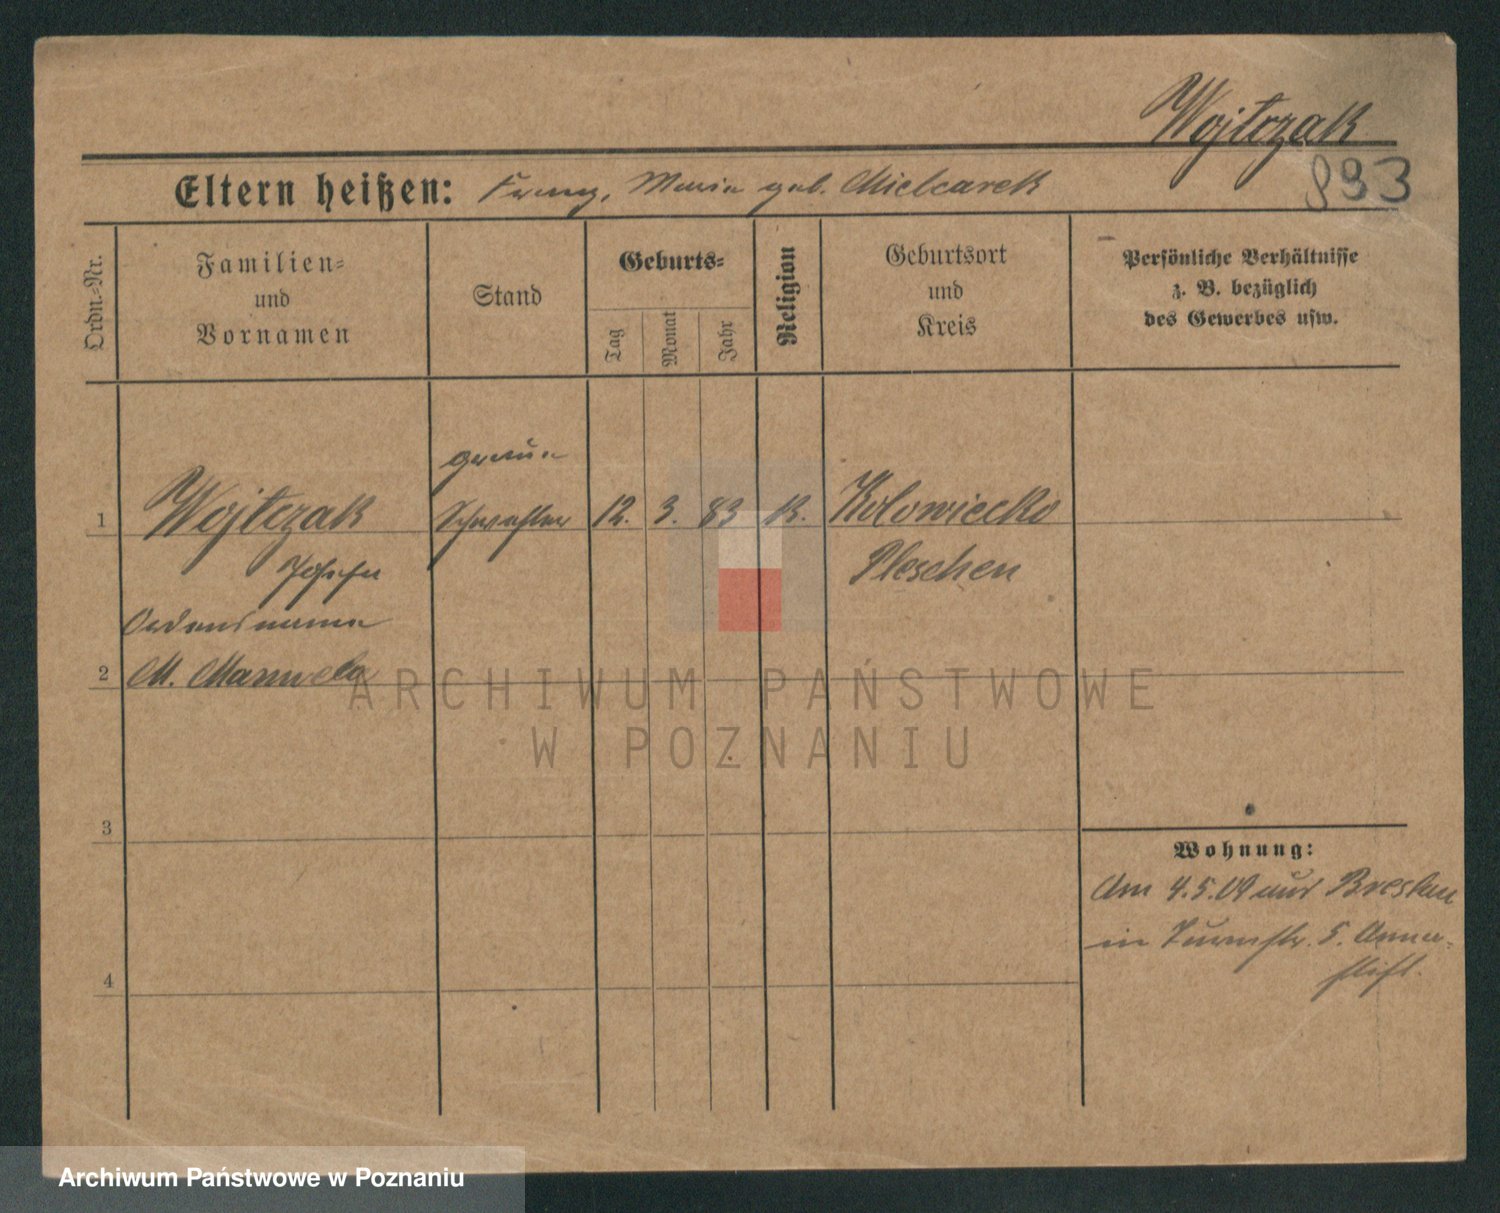 Wojtczak
893
Eltern heißen: Franz, Maria geb. Mielcarek
Ordn.-Nr.
Familien-
und
Vornamen
Stand
Geburts-
Tag
Monat
Jahr
Religion
Geburtsort
und
Kreis
Persönliche Verhältnisse
z. B. bezüglich
des Gewerbes usw.
1 Wojtczak Schwester 12. 3. 83 K.
Pleschen
Josefa
Ordensname
2 M. Manuela
3
4
Wohnung:
Am 4.5.09 aus Breslau
in Turmstr. 5. Anna-
stift.
ARCHIWUM PAŃSTWOWE
W POZNANIU
Archiwum Państwowe w Poznaniu